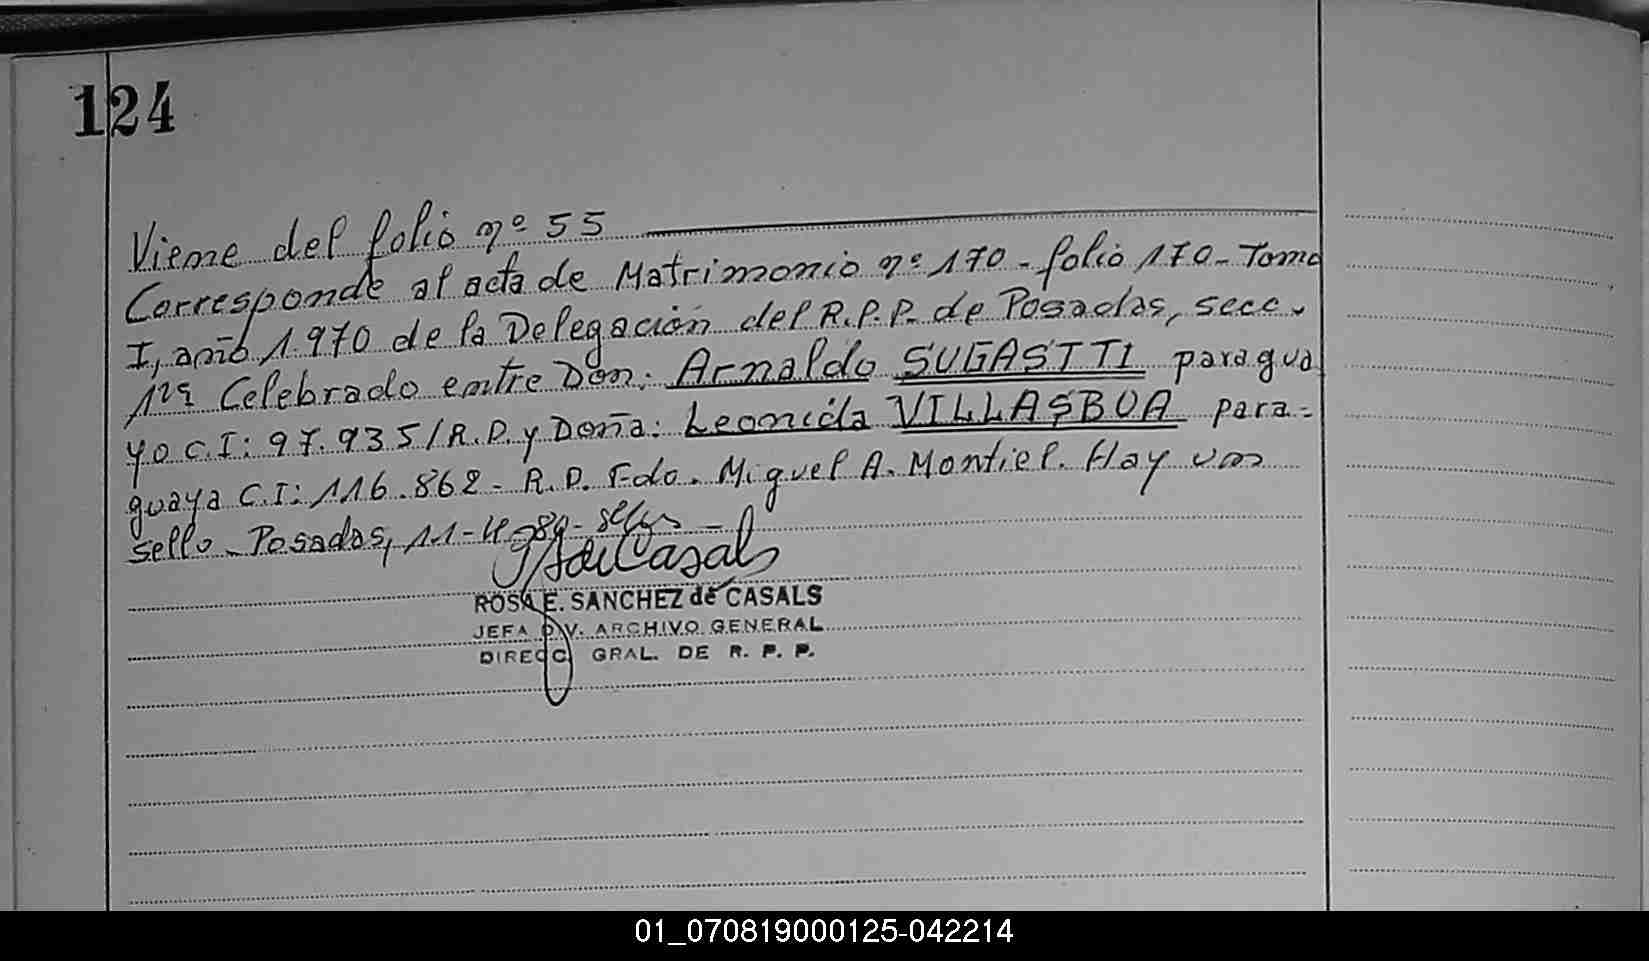 124
Viene del folio nº 55
Corresponde al acta de Matrimonio nº 170 - folio 170 - Tomo
I, año 1.970 de la Delegación del R.P.P. de Posadas, secc.
1ra Celebrado entre Don: Arnaldo SUGASTTI paragua
yo C.I: 97.935/R.P. y Doña: Leonida VILLASBOA para-
guaya C.I: 116.862 - R.P. Fdo. Miguel A. Montiel. Hay un
sello. Posadas, 11-4-89-
ROSA E. SANCHEZ de CASALS
JEFA DIV. ARCHIVO GENERAL
DIRECC. GRAL. DE R. P. P.
01_070819000125-042214